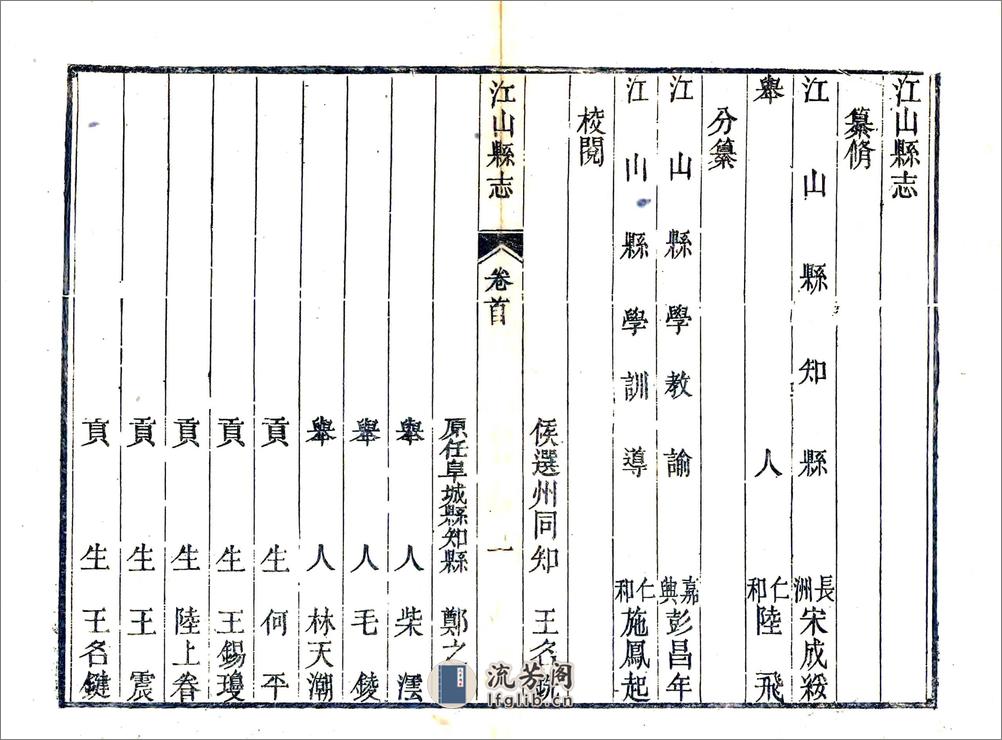 江山縣志
纂脩
江山縣知縣 長洲宋成綏
舉人 仁和陸飛
分纂
江山縣學教諭 嘉興彭昌年
江山縣學訓導 仁和施鳳起
校閱
候選州同知 王名
江山縣志 卷首 一
原任阜城縣知縣 鄭之
舉人 柴澐
舉人 毛錂
舉人 林天潮
貢生 何平
貢生 王錫瓊
貢生 陸上眷
貢生 王震
貢生 王名鍵
流芳阁
lfglib.cn